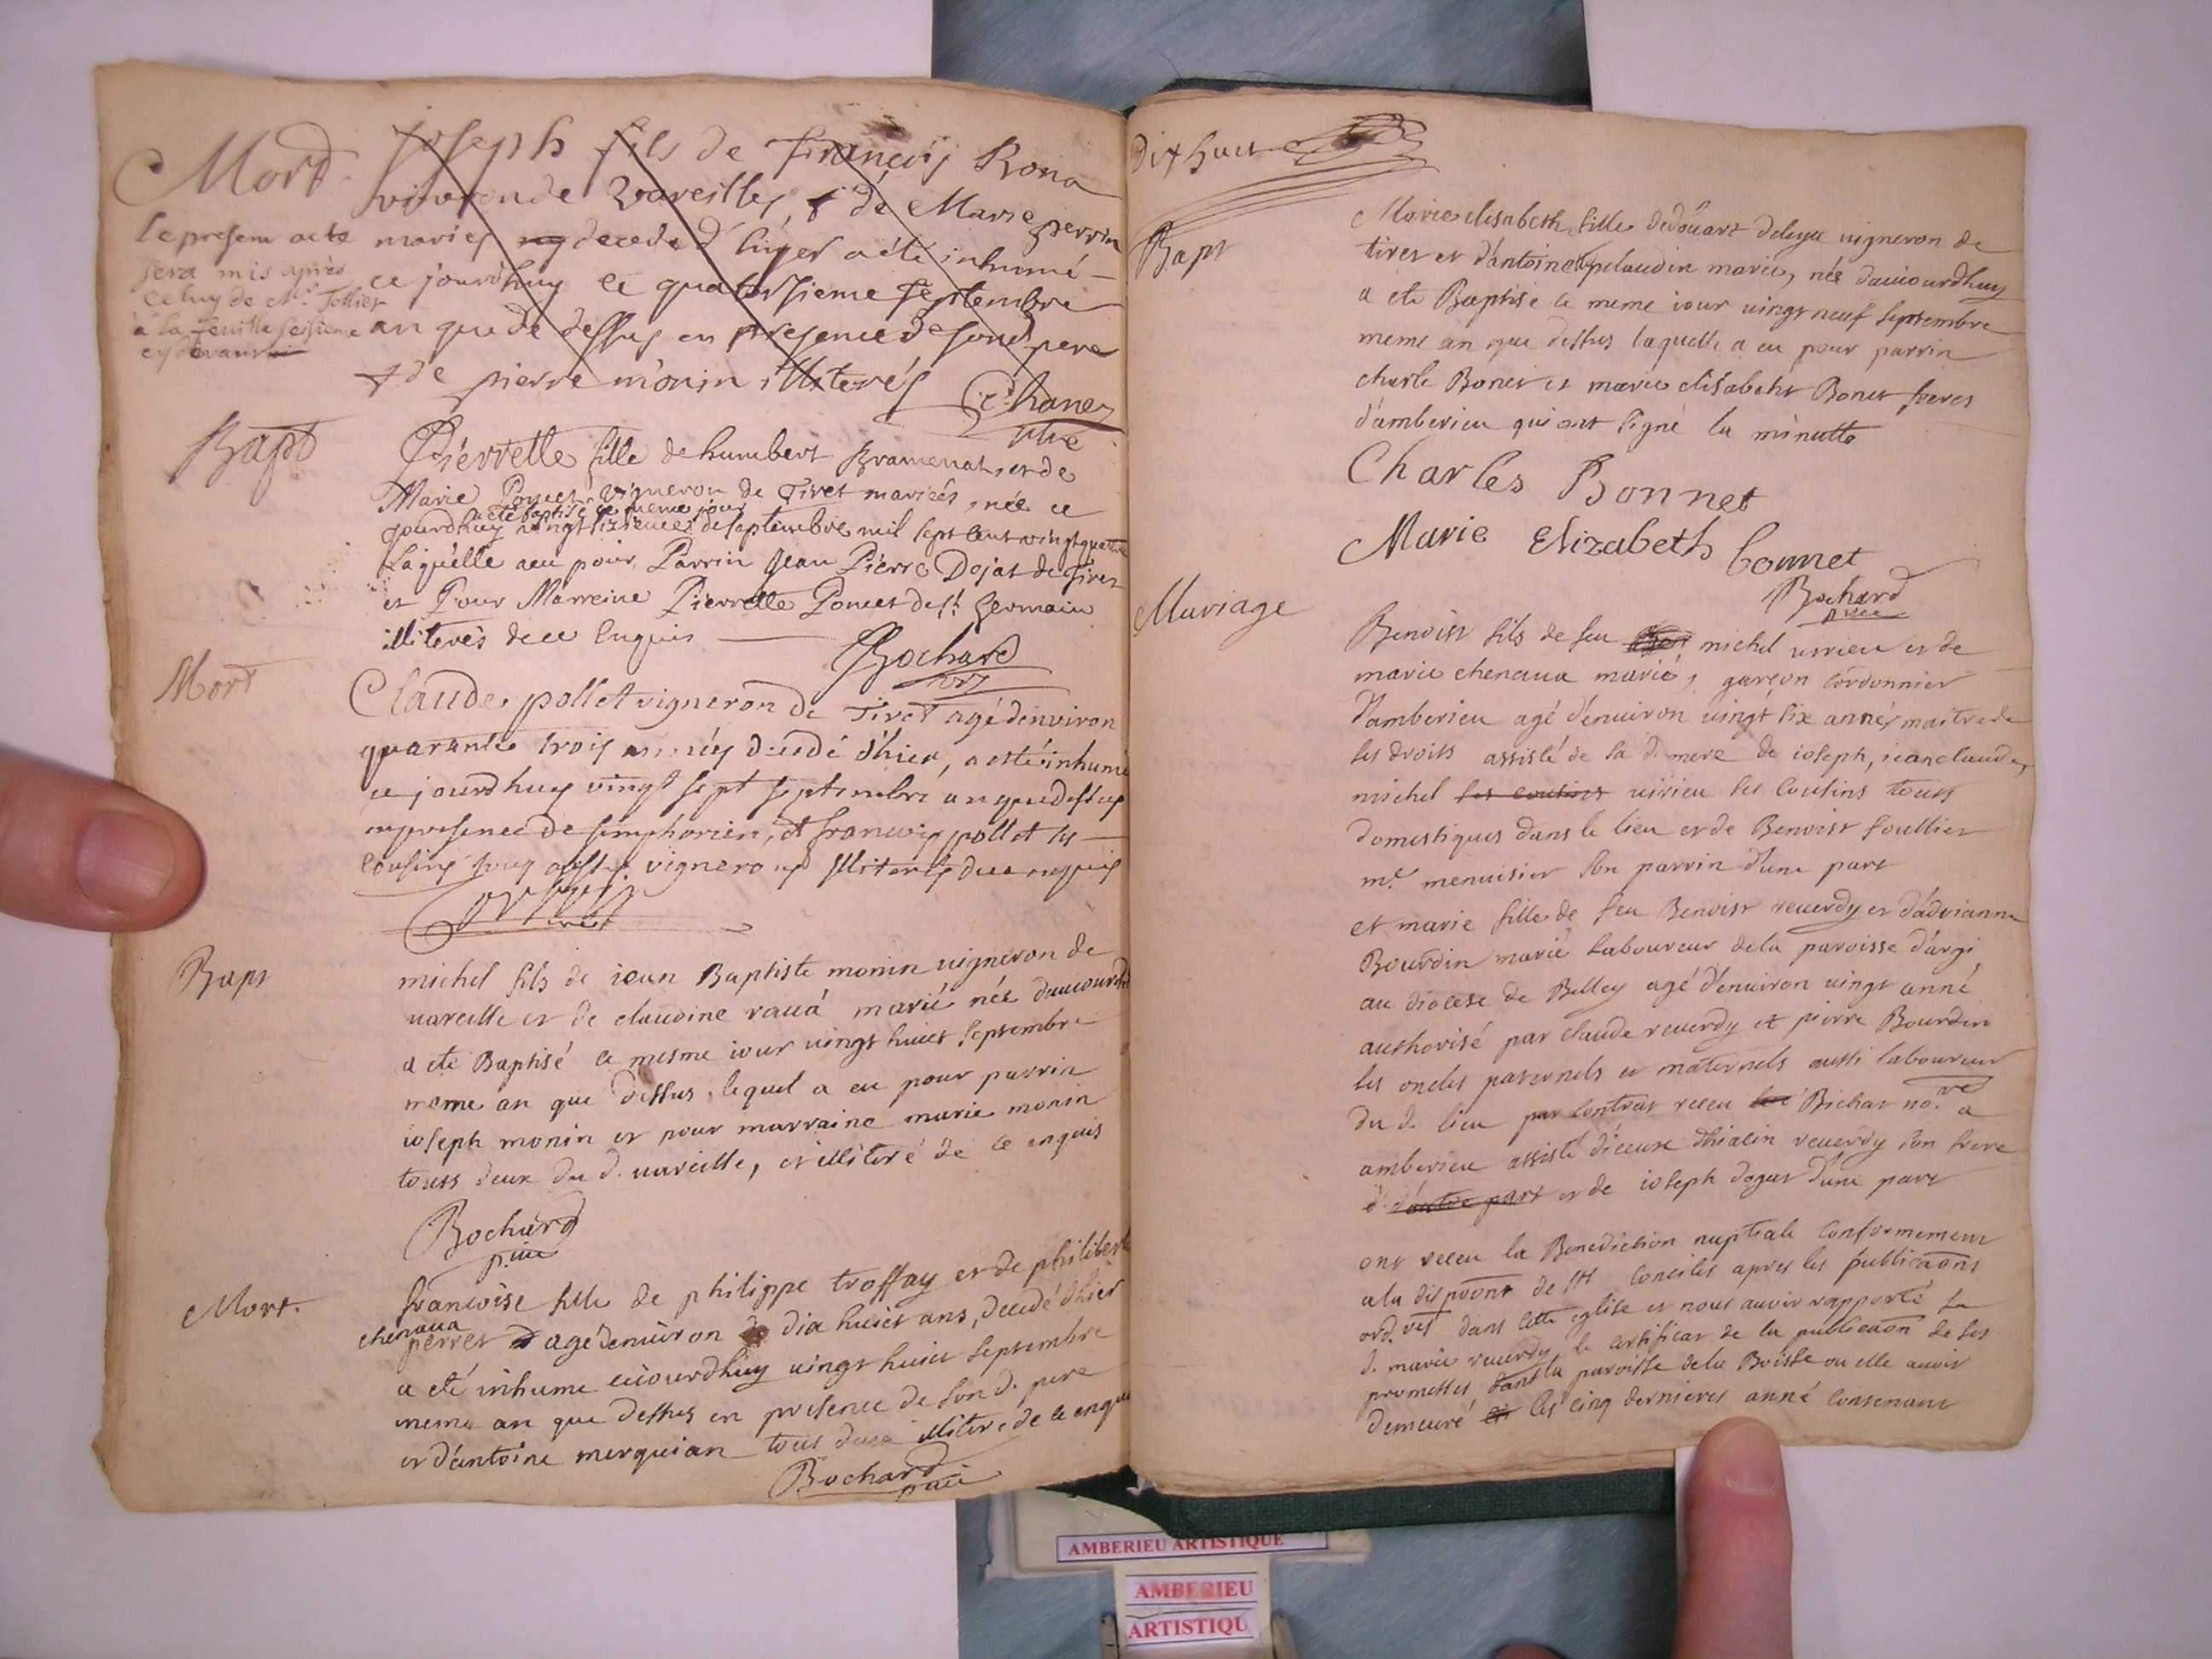 Mort
Joseph fils de françois Rona
vigneronde Vareilles, & de Marie perrin
mariés decedé d'hiyer a été inhumé
ce jourd'huy le quatorsieme septembre
an que de dessus en presence de sond pere
& de pierre monin illiterés
Chanez
ptre
Le present acte
sera mis après
celuy de Mr. Tollier
à la feuille
cy devant
Bapt
Pierrette fille de humbert Bramenat, et de
Marie Poncet vigneron de Tiret mariés, née ce
a été baptisé le meme jour
jourdhuy vingt sixieme de septembre mil sept cent vingt quattre
Laquelle a eu pour Parrin Jean Pierre Dojat de Tiret
et Pour Marreine Pierrette Poncet de st. Germain
illiterés de ce Enquis
Bochard
Mort
Claude pollet vigneron de Tiret agé denviron
quarante trois années decedé d'hier, a esté inhumé
ce jourdhuy vingt sept septembre an que dessus
en presence de simphorien, et francois pollet ses
cousins tous vignerons illiterés de ce enquis
Bapt
michel fils de iean Baptiste monin vigneron de
vareille et de claudine ravá marié née daucourdhuy
a eté Baptisé le mesme iour vingt huict septembre
meme an que dessus, lequel a eu pour parrin
ioseph monin et pour marraine marie monin
touts deux du d. vareille, et illiteré de ce enquis
Bochard
Mort.
francoise fille de philippe troffay et de philiberte
chenaua
perret agé denviron dix huict ans, decedé d'hier
a eté inhumé ceiourdhuy vingt huict septembre
meme an que dessus en presence de son d. pere
et d'antoine merquian tous deux illiteré de ce enquis
Bochard
dix huit
Bapt
Marie elisabeth fille dedoüart deleya vigneron de
tiret et d'antoinette pelaudin mariés, née dauiourdhuy
a eté Baptisé le meme iour vingt neuf septembre
meme an que dessus laquelle a eu pour parrin
charle Bonet et marie elisabeht Bonet freres
d'amberieu qui ont signé la minutte
Charles Bonnet
Marie Elizabeth bonnet
Bochard
Mariage
Benoist fils de feu michel virieu et de
marie chenaua mariés, garçon cordonnier
d'amberieu agé d'enuiron vingt six années maitre de
ses droits assisté de sa d. mere de ioseph, iean claude,
michel ses cousins virieu ses cousins touts
domestiques dans le lieu et de Benoist soullier
me. menuisier son parrin d'une part
et marie fille de feu Benoist reuerdy et d'adrianne
Bourdin marié laboureur dela paroisse d'argi
au diocese de Belley agé d'enuiron vingt anné
authorisé par claude reuerdy et pierre Bourdin
ses oncles paternels et maternels aussi laboureur
du d. lieu par contrat receu Bichat no.re a
amberieu assisté d'iceux reuerdy son frere
d'autre part et de ioseph doguet d'une part
ont receu la Benediction nuptiale conformement
a la de sts conciles apres les publicaons
ord.res dans cette eglise et nous auoir rapporté la
d. marie reuerdy le certificat de la publicaon de ses
promesses dans la paroisse dela Boisse ou elle auoit
demeuré les cinq dernieres anné consenant
AMBERIEU ARTISTIQUE
AMBERIEU
ARTISTIQU